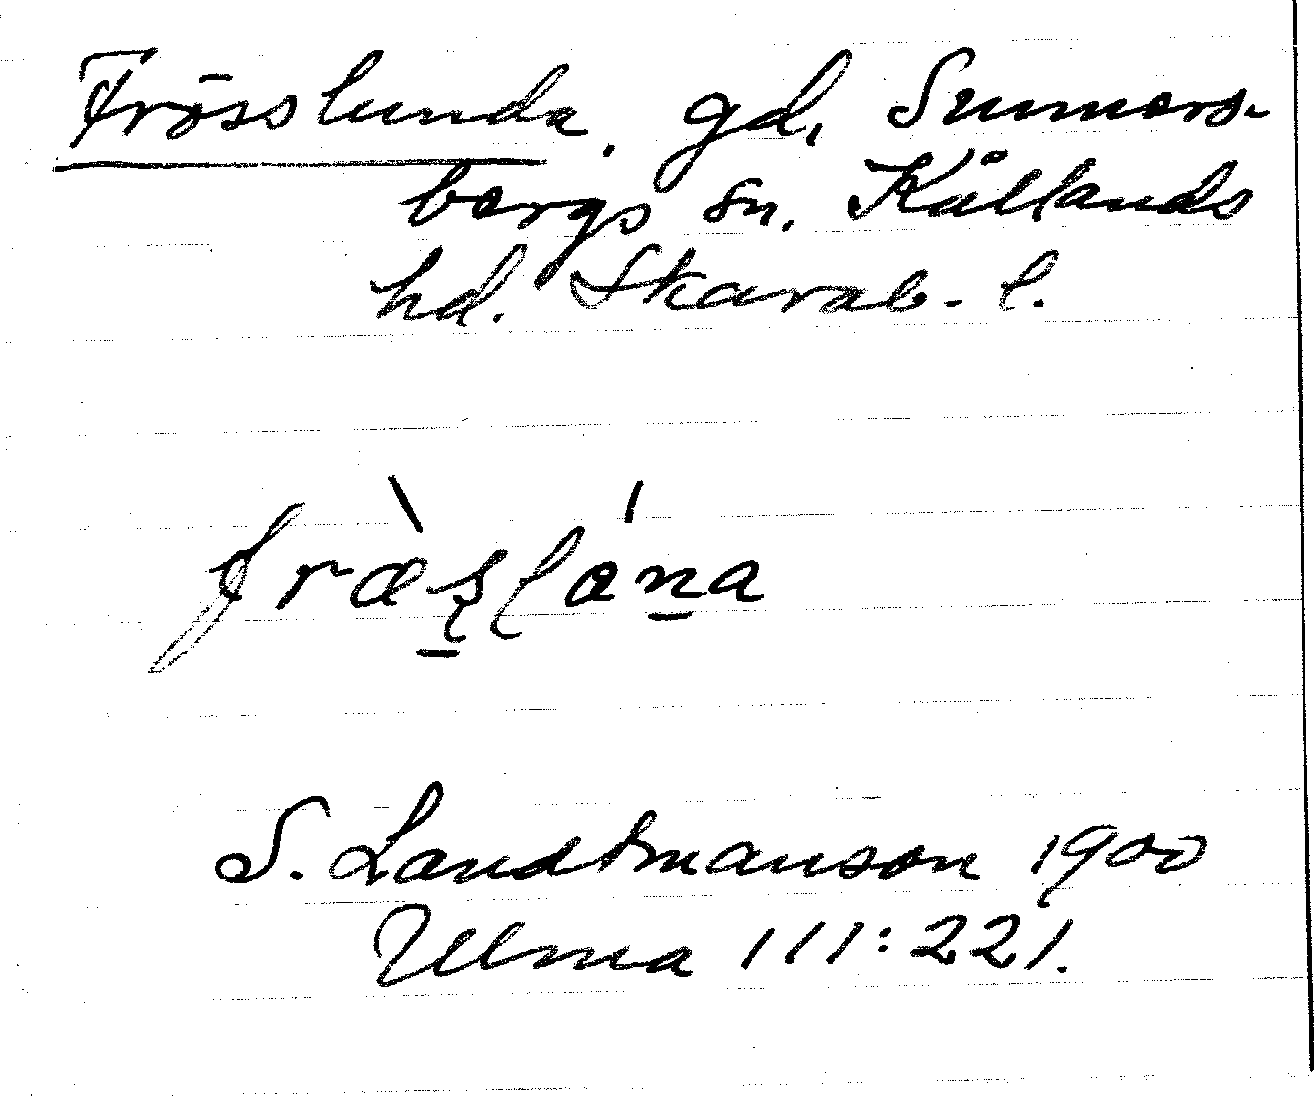 Frösslunda. gd. Sunners-
bergs sn. Kållands
hd. Skarab. l.
S. Landtmanson 1900
Ulma 111:221.